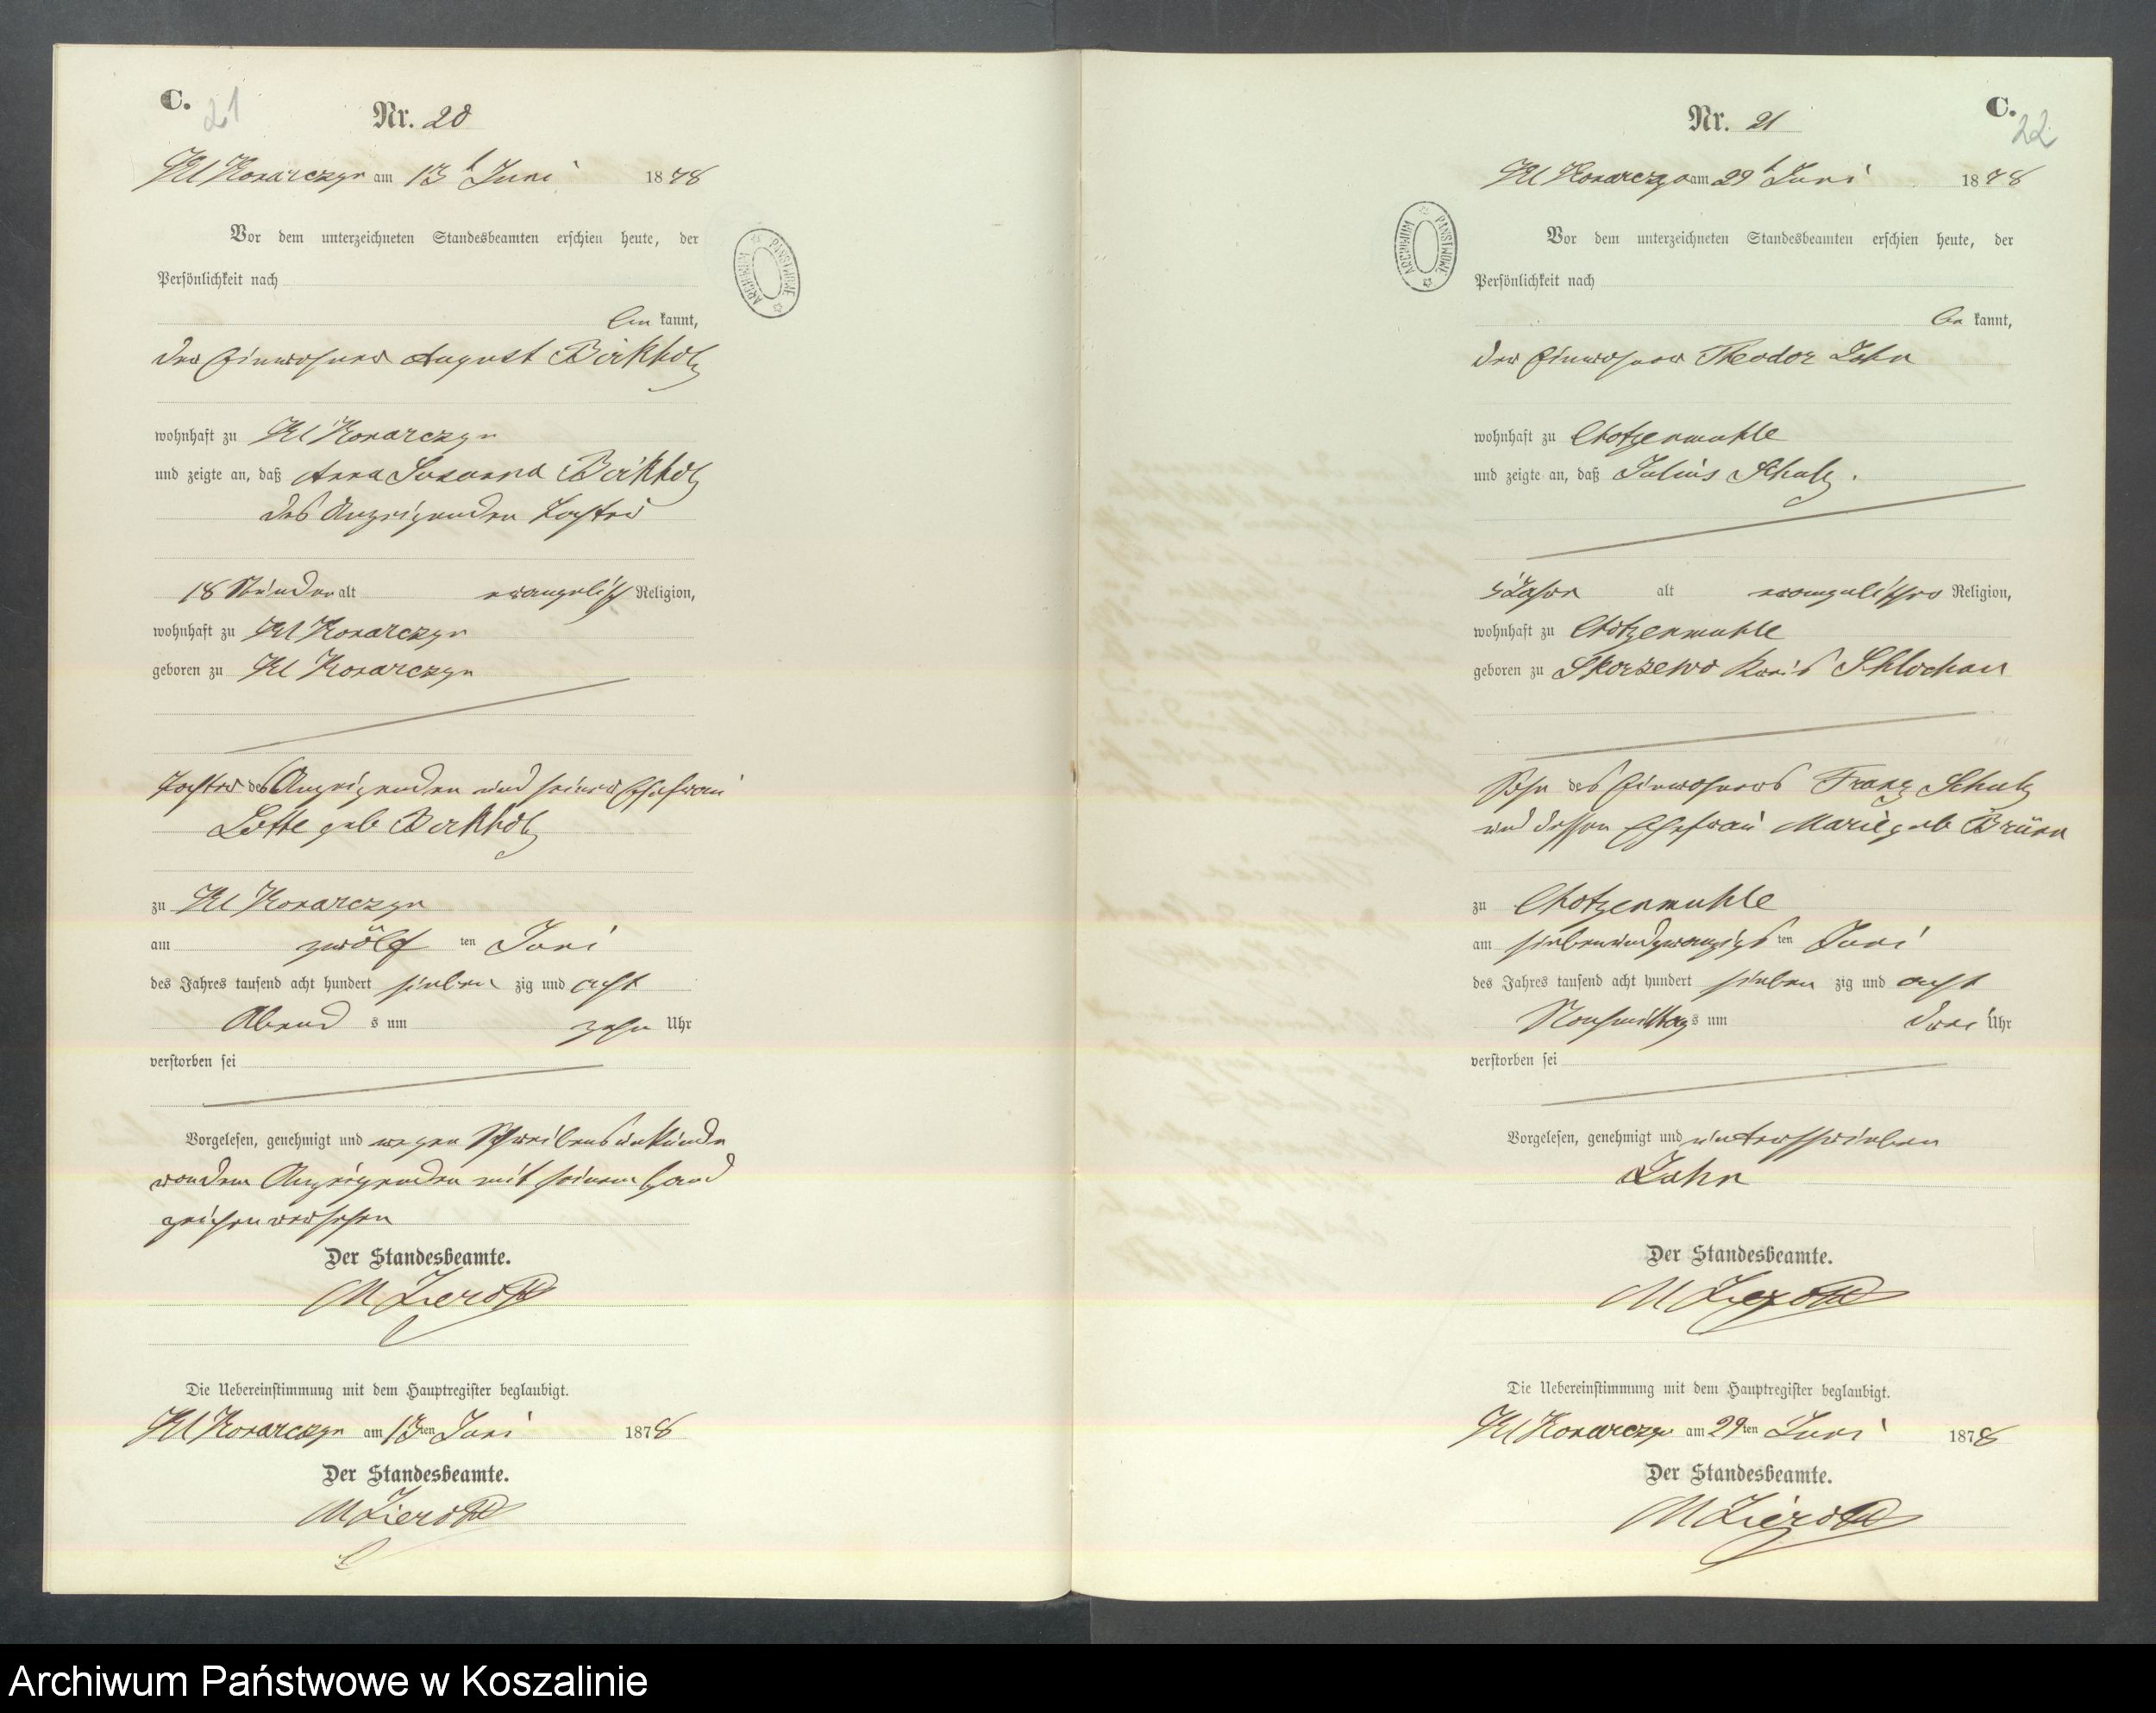 C. 21
Nr. 20
Kl Konarczyn am 13t Juni 1878
Vor dem unterzeichneten Standesbeamten erschien heute, der
Persönlichkeit nach
be kannt,
der Einwohner August Birkholz
wohnhaft zu Kl Konarczyn
und zeigte an, daß Anna Susanna Birkholz
des Anzeigenden Tochter
18 Stunden alt evangelisch Religion,
wohnhaft zu Kl Konarczyn
geboren zu Kl Konarczyn
Tochter des Anzeigenden und seiner Ehefrau
Lotte geb Birkholz
zu Kl Konarczyn
am zwölf ten Juni
des Jahres tausend acht hundert sieben zig und acht
Abend s um zehn Uhr
verstorben sei
Vorgelesen, genehmigt und wegen Schreibensunkunde
von dem Anzeigenden mit seinem Hand
zeichen versehen
Der Standesbeamte.
M Zierott
Die Uebereinstimmung mit dem Hauptregister beglaubigt.
Kl Konarczyn am 13ten Juni 1878
Der Standesbeamte.
M Zierott
ARCHIWUM PAŃSTWOWE
C. 22
Nr. 21
Kl Konarczyn am 29t Juni 1878
Vor dem unterzeichneten Standesbeamten erschien heute, der
Persönlichkeit nach
be kannt,
der Einwohner Theodor Zahn
wohnhaft zu Chotzenmuhle
und zeigte an, daß Julius Schulz.
5 Jahr alt evangelischer Religion,
wohnhaft zu Chotzenmuhle
geboren zu Skorzewo Kreis Schlochau
Sohn des Einwohners Franz Schulz
und dessen Ehefrau Marie geb Brünn
zu Chotzenmuhle
am siebenundzwanzigst ten Juni
des Jahres tausend acht hundert sieben zig und acht
Nachmittag s um drei Uhr
verstorben sei
Vorgelesen, genehmigt und unterschrieben
Zahn
Der Standesbeamte.
M Zierott
Die Uebereinstimmung mit dem Hauptregister beglaubigt.
Kl Konarczyn am 29ten Juni 1878
Der Standesbeamte.
M Zierott
ARCHIWUM PAŃSTWOWE
Archiwum Państwowe w Koszalinie